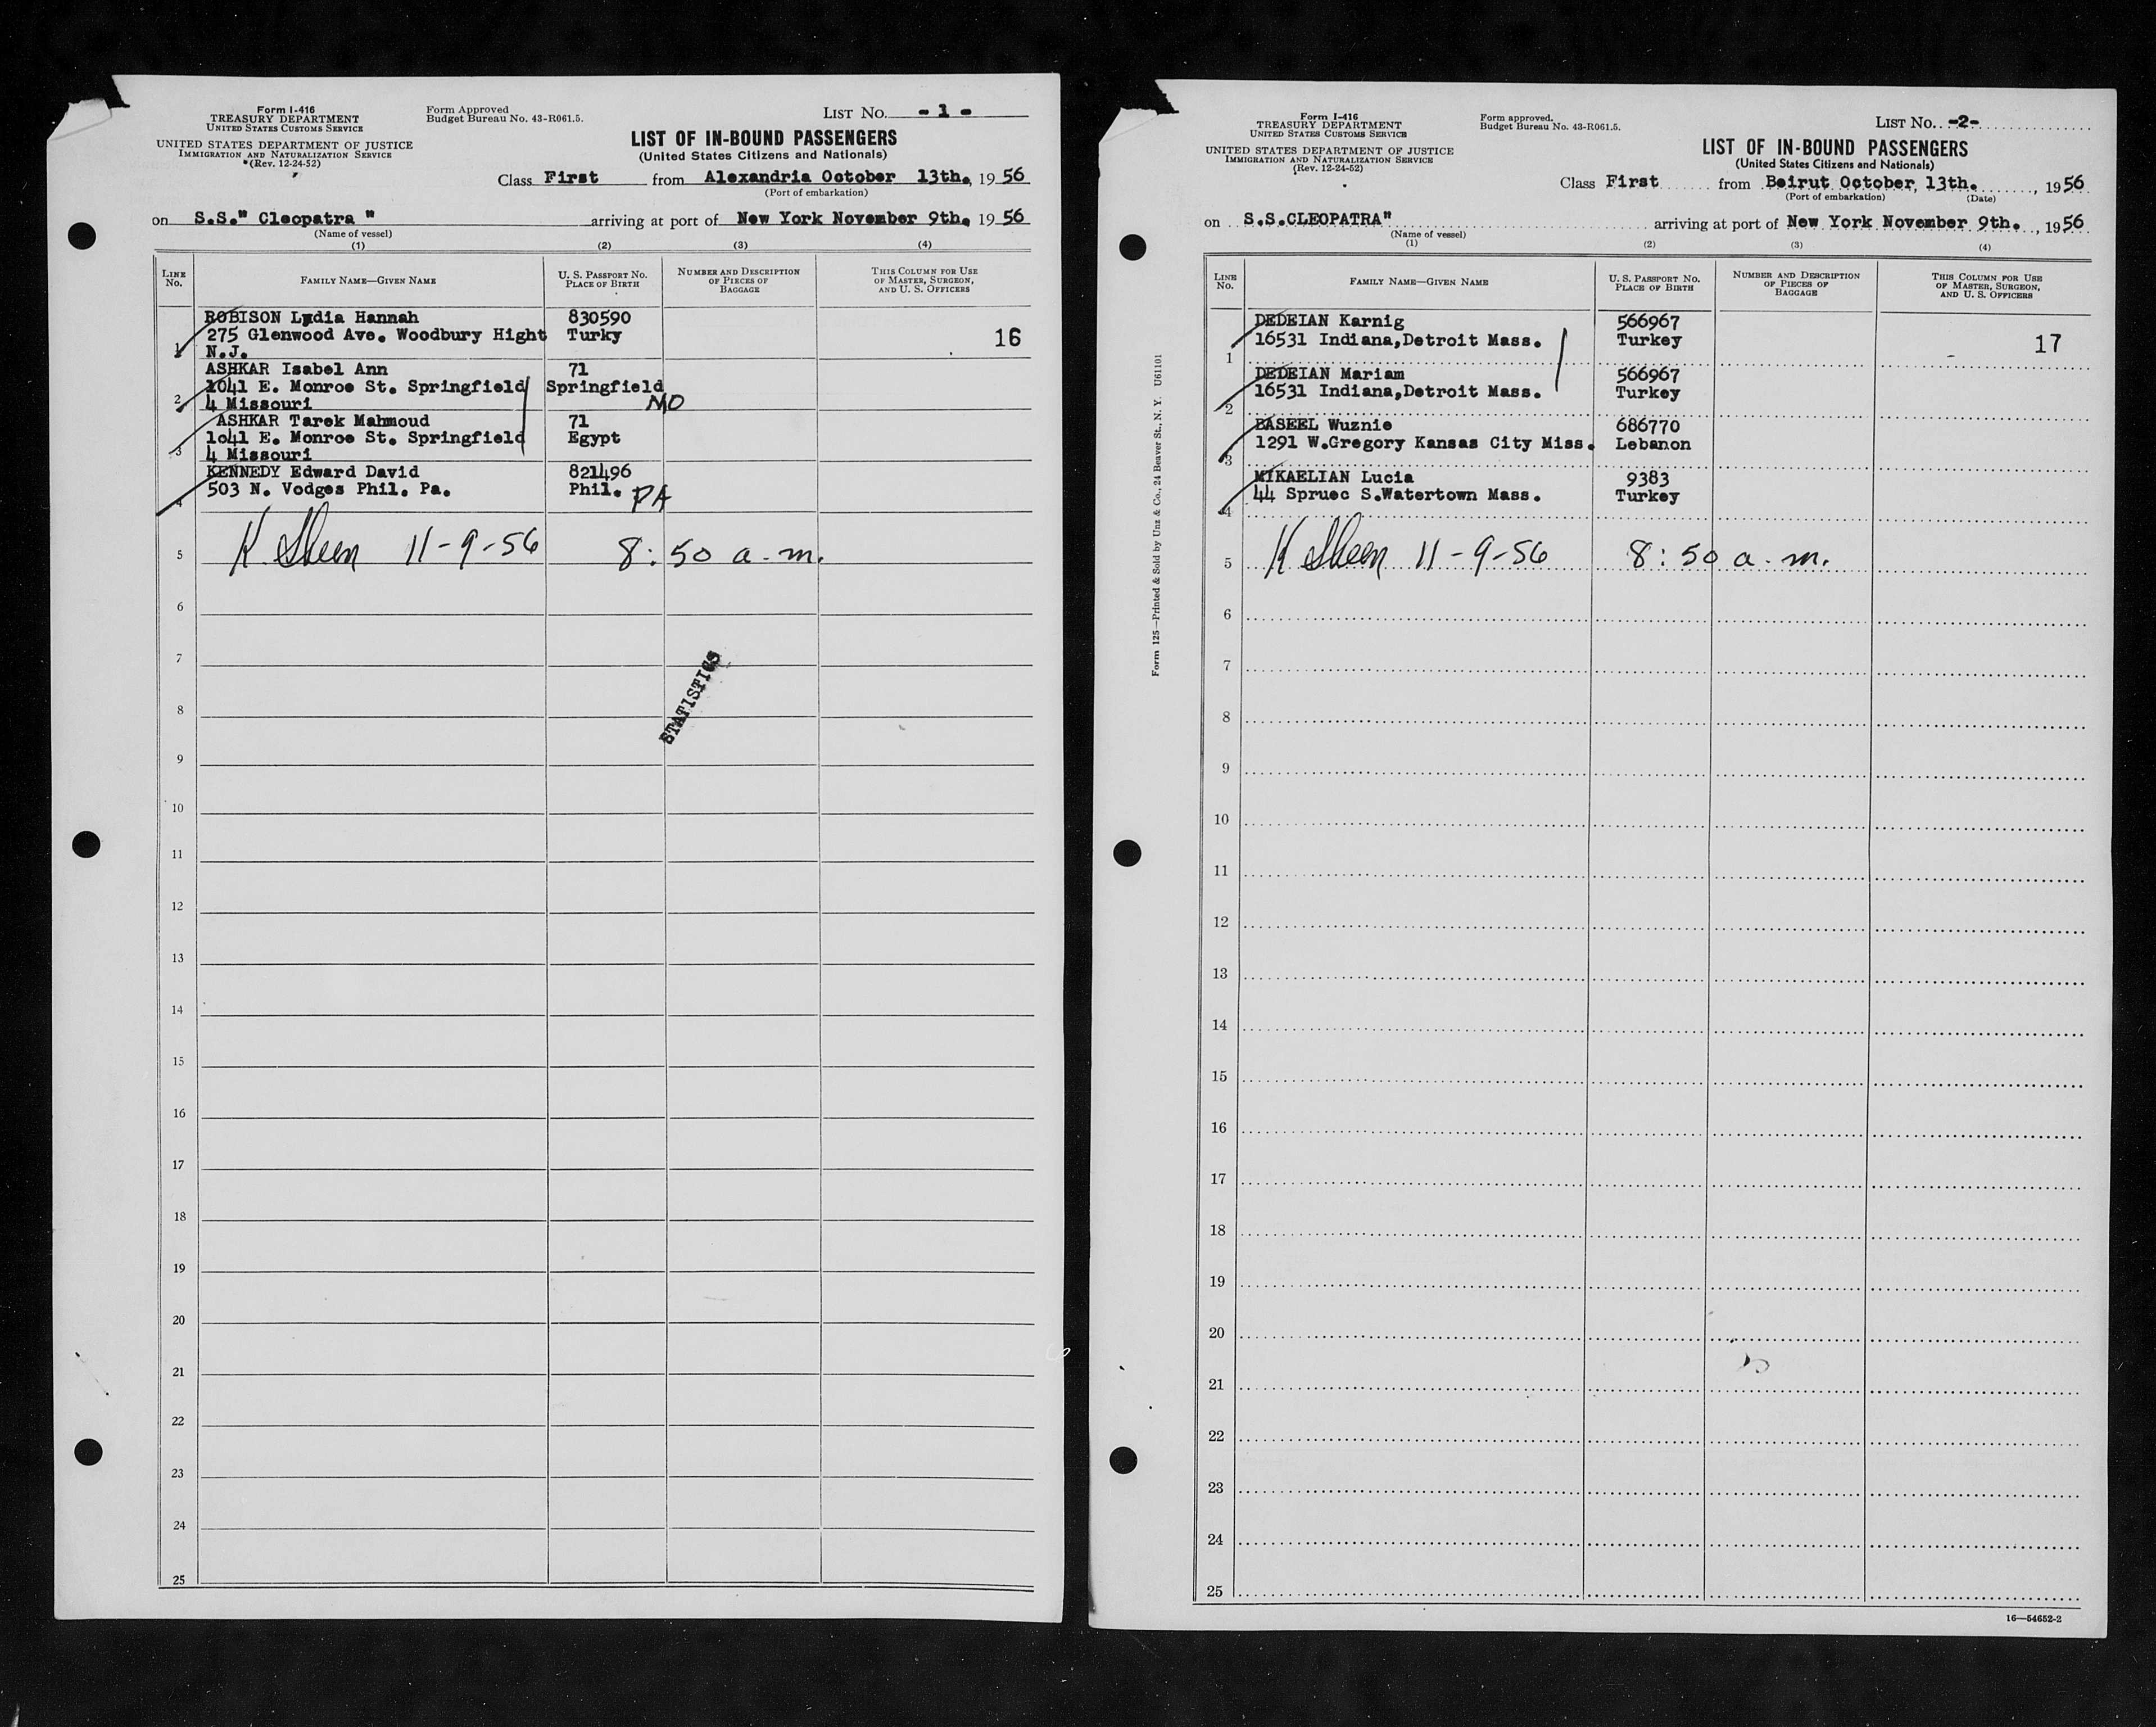 Form I-416
TREASURY DEPARTMENT
UNITED STATES CUSTOMS SERVICE
UNITED STATES DEPARTMENT OF JUSTICE
IMMIGRATION AND NATURALIZATION SERVICE
(Rev. 12-24-52)
Form Approved
Budget Bureau No. 43-R061.5.
LIST No. - 1 -
LIST OF IN-BOUND PASSENGERS
(United States Citizens and Nationals)
Class First from Alexandria October 13th., 1956
(Port of embarkation)
on S.S." Cleopatra " arriving at port of New York November 9th, 1956
(Name of vessel)
(1) (2) (3) (4)
LINE No. FAMILY NAME—GIVEN NAME U. S. PASSPORT NO. PLACE OF BIRTH NUMBER AND DESCRIPTION OF PIECES OF BAGGAGE THIS COLUMN FOR USE OF MASTER, SURGEON, AND U. S. OFFICERS
ROBISON Lydia Hannah 830590
275 Glenwood Ave. Woodbury Hight Turky 16
1 N.J.
ASHKAR Isabel Ann 71
1041 E. Monroe St. Springfield Springfield
2 4 Missouri MO
ASHKAR Tarek Mahmoud 71
1041 E. Monroe St. Springfield Egypt
3 4 Missouri
KENNEDY Edward David 821496
503 N. Vodges Phil. Pa. Phil. PA
4
5 K Sheen 11-9-56 8:50 a.m.
6
7
STATISTICS
8
9
10
11
12
13
14
15
16
17
18
19
20
21
22
23
24
25
Form 125—Printed & Sold by Unz & Co., 24 Beaver St., N. Y. U61101
Form I-416
TREASURY DEPARTMENT
UNITED STATES CUSTOMS SERVICE
UNITED STATES DEPARTMENT OF JUSTICE
IMMIGRATION AND NATURALIZATION SERVICE
(Rev. 12-24-52)
Form approved.
Budget Bureau No. 43-R061.5.
LIST No. -2-
LIST OF IN-BOUND PASSENGERS
(United States Citizens and Nationals)
Class First from Beirut October, 13th. , 1956
(Port of embarkation) (Date)
on S.S.CLEOPATRA" arriving at port of New York November 9th. , 1956
(Name of vessel)
(1) (2) (3) (4)
LINE No. FAMILY NAME—GIVEN NAME U. S. PASSPORT NO. PLACE OF BIRTH NUMBER AND DESCRIPTION OF PIECES OF BAGGAGE THIS COLUMN FOR USE OF MASTER, SURGEON, AND U. S. OFFICERS
DEDEIAN Karnig 566967
16531 Indiana,Detroit Mass. Turkey 17
1
DEDEIAN Mariam 566967
16531 Indiana,Detroit Mass. Turkey
2
BASEEL Wuznie 686770
1291 W.Gregory Kansas City Miss. Lebanon
3
MIKAELIAN Lucia 9383
44 Spruec S.Watertown Mass. Turkey
4
5 K Sheen 11-9-56 8:50 a.m.
6
7
8
9
10
11
12
13
14
15
16
17
18
19
20
21
22
23
24
25
16—54652-2